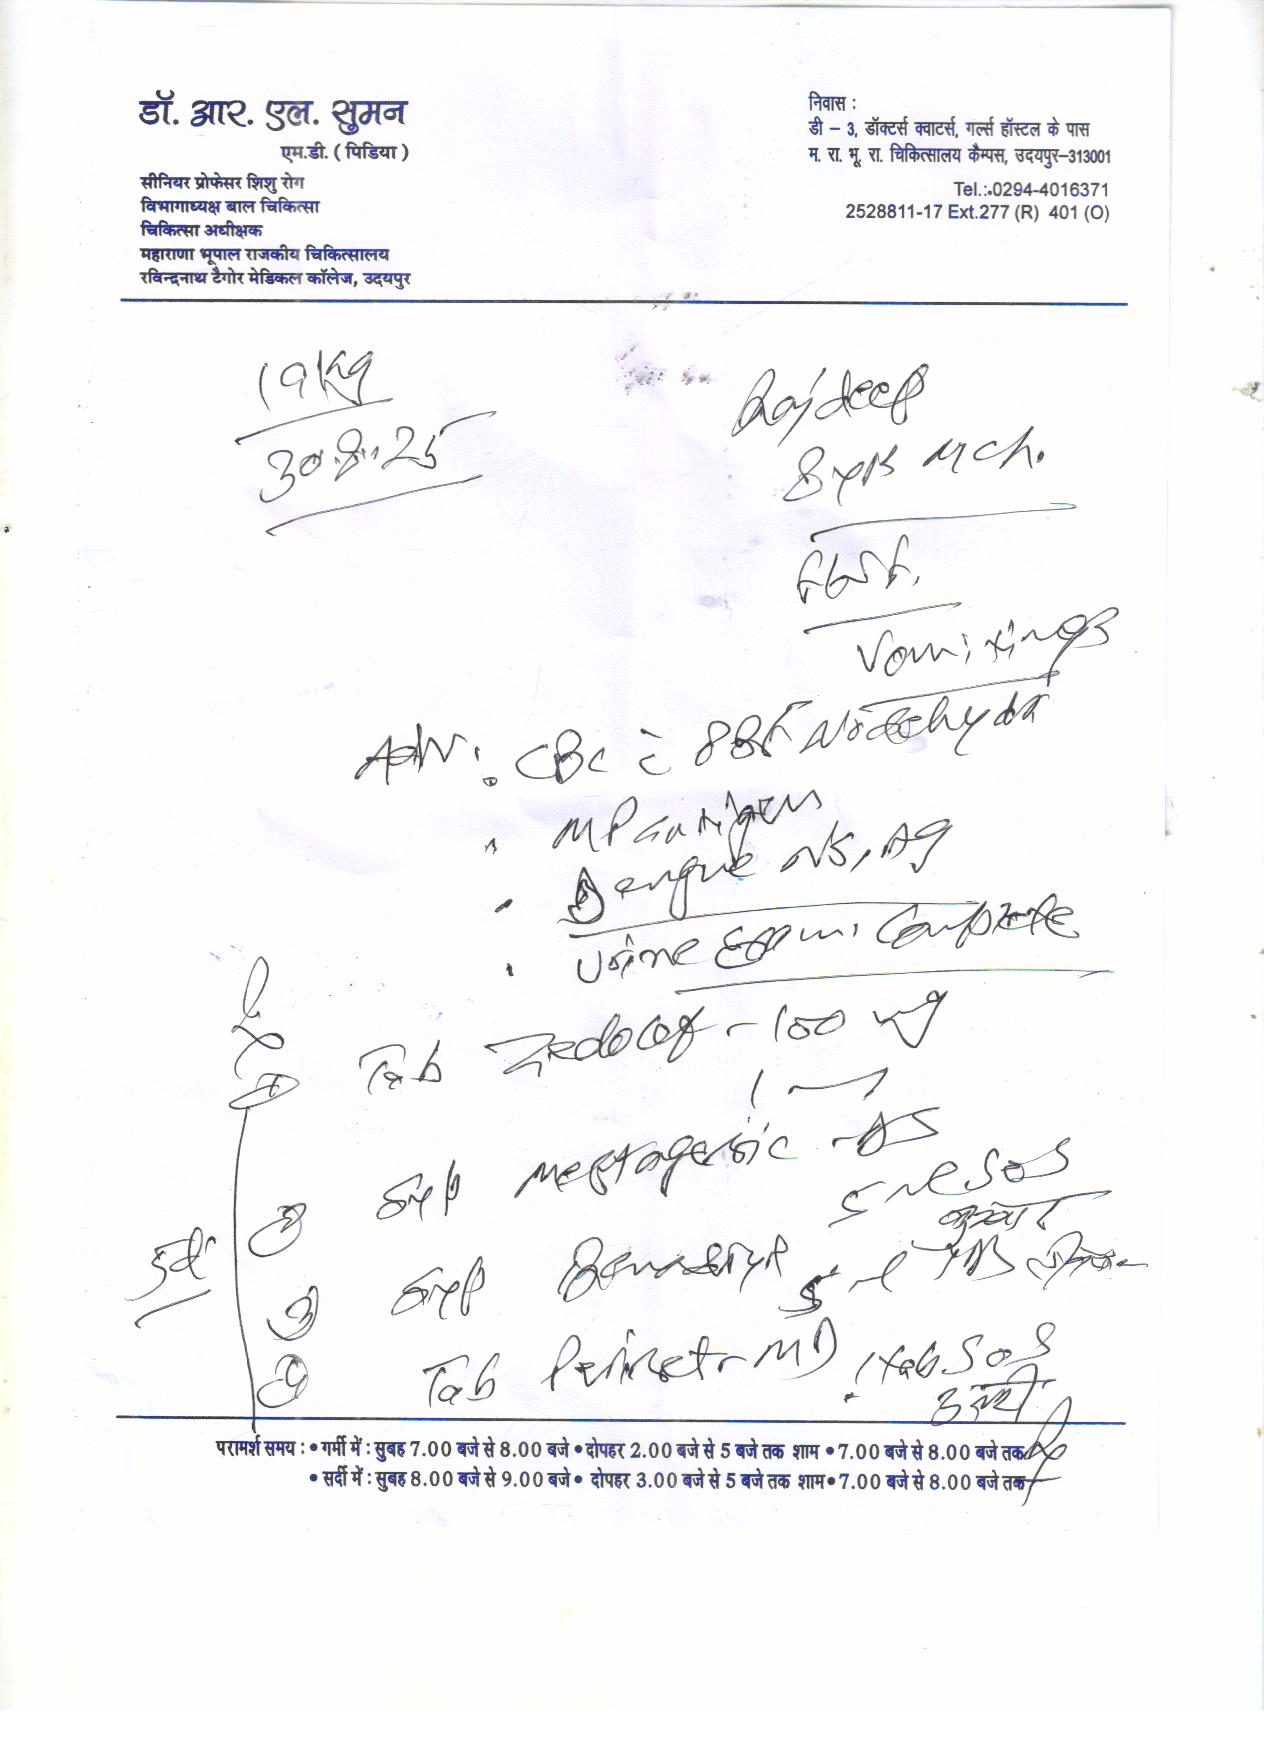 डॉ. आर. एल. सुमन
एम.डी. ( पिडिया )
सीनियर प्रोफेसर शिशु रोग
विभागाध्यक्ष बाल चिकित्सा
चिकित्सा अधीक्षक
महाराणा भूपाल राजकीय चिकित्सालय
रविन्द्रनाथ टैगोर मेडिकल कॉलेज, उदयपुर
निवास :
डी – 3, डॉक्टर्स क्वाटर्स, गर्ल्स हॉस्टल के पास
म. रा. भू. रा. चिकित्सालय कैम्पस, उदयपुर–313001
Tel.:.0294-4016371
2528811-17 Ext.277 (R) 401 (O)
19kg
30.8.25
Rajdeep
8 yrs Mch.
Vomitings
Adv. CBC c PBF
MP antigen
Dengue NS1 Ag
Urine Exam. Complete
Tab - 100 mg
Syp - DS
5 ml SOS
बुखार
Syp 5 ml
Tab Perinorm - MD 1 tab SOS
उल्टी
परामर्श समय : • गर्मी में : सुबह 7.00 बजे से 8.00 बजे • दोपहर 2.00 बजे से 5 बजे तक शाम • 7.00 बजे से 8.00 बजे तक
• सर्दी में : सुबह 8.00 बजे से 9.00 बजे • दोपहर 3.00 बजे से 5 बजे तक शाम • 7.00 बजे से 8.00 बजे तक